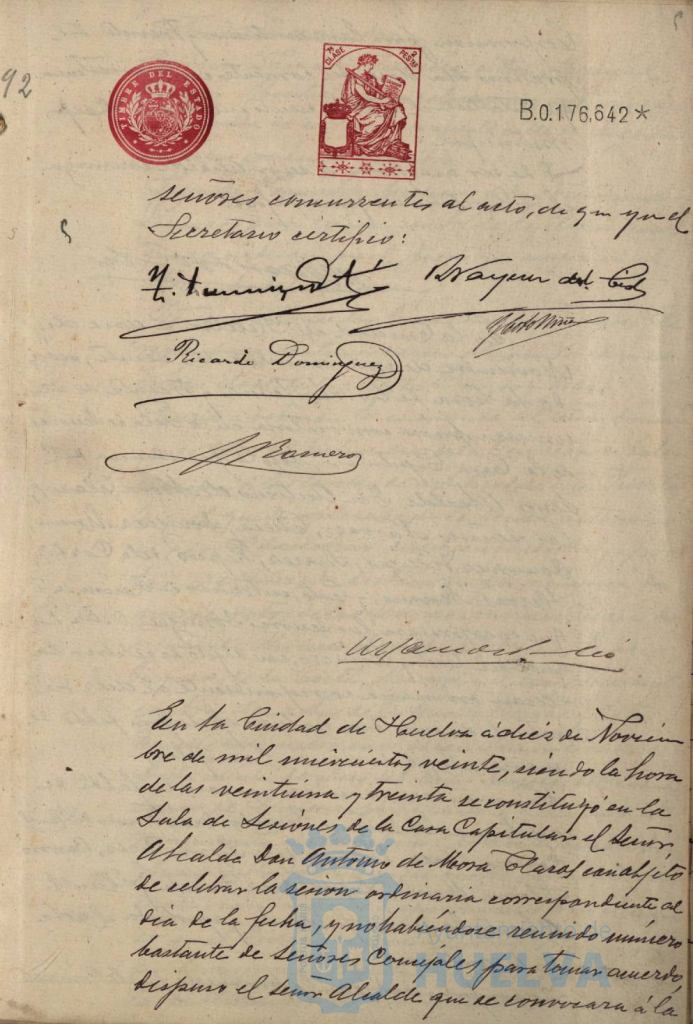 92
TIMBRE DEL ESTADO
CLASE
PESTAS
B.0.176,642*
señores concurrentes al acto, de que yo el
Secretario certifico:
Ricardo Dominguez
A Romero
En la Ciudad de Huelva á diez de Noviem
bre de mil novecientos veinte, siendo la hora
de las veintiuna y treinta se constituyó en la
Sala de Sesiones de la Casa Capitular el Señor
Alcalde Don Antonio de Mora Claros con objeto
de celebrar la sesion ordinaria correspondiente al
dia de la fecha, y no habiéndose reunido número
bastante de Señores Concejales para tomar acuerdo,
dispuso el Señor Alcalde que se convocara á la
HUELVA